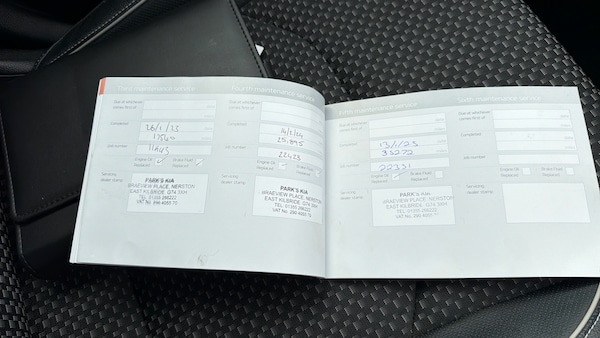 Third maintenance service
Due at whichever
comes first of
Completed
26/1/23
Job number
11643
Engine Oil ✓
Replaced
Brake Fluid ✓
Replaced
Servicing
dealer stamp
PARK'S KIA
BRAEVIEW PLACE, NERSTON
EAST KILBRIDE G74 3XH
TEL: 01355 266222
VAT No.
Fourth maintenance service
Due at whichever
comes first of
Completed
14/2/24
25,895
Job number
22423
Engine Oil ✓
Replaced
Brake Fluid
Replaced
Servicing
dealer stamp
PARK'S KIA
BRAEVIEW PLACE, NERSTON
EAST KILBRIDE G74 3XH
TEL: 01355 266222
VAT No. 290 4055 70
Fifth maintenance service
Due at whichever
comes first of
Completed
33272
Job number
Engine Oil ✓
Replaced
Brake Fluid
Replaced
Servicing
dealer stamp
PARK'S KIA
BRAEVIEW PLACE, NERSTON
EAST KILBRIDE G74 3XH
TEL: 01355 266222
VAT No. 290 4055 70
Sixth maintenance service
Due at whichever
comes first of
Completed
Job number
Engine Oil
Replaced
Brake Fluid
Replaced
Servicing
dealer stamp